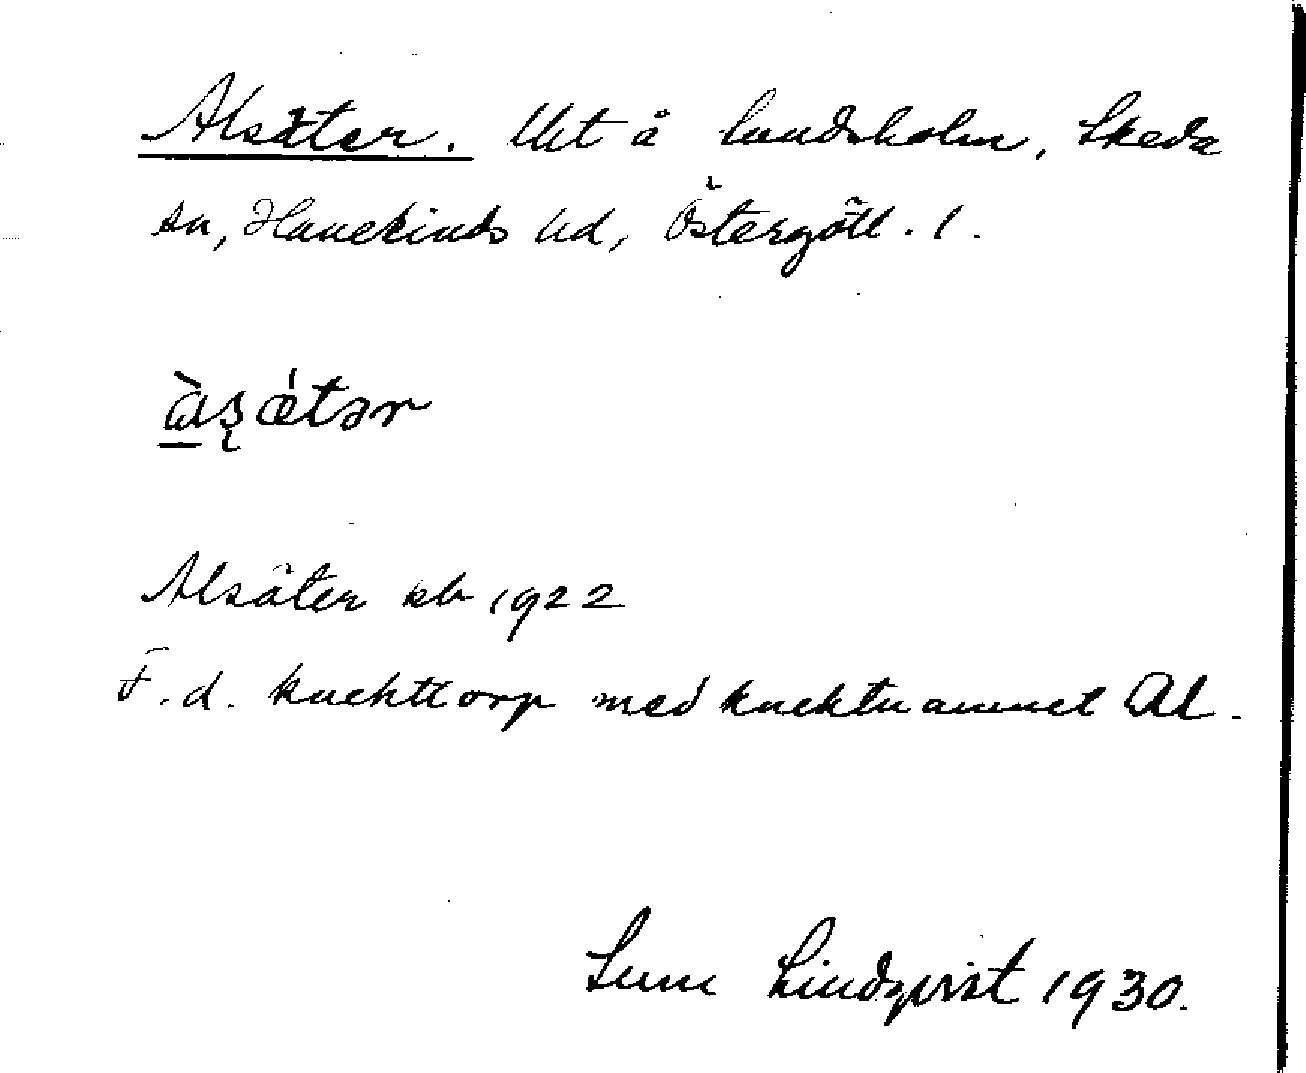 Alsäter. Utt å Lundsholm, Skeda
sn, Hanekinds hd, Östergötl. l.
àʂǽtər
Alsäter kb 1922
F. d. knekttorp med knektnamnet Al.
Sune Lindqvist 1930.